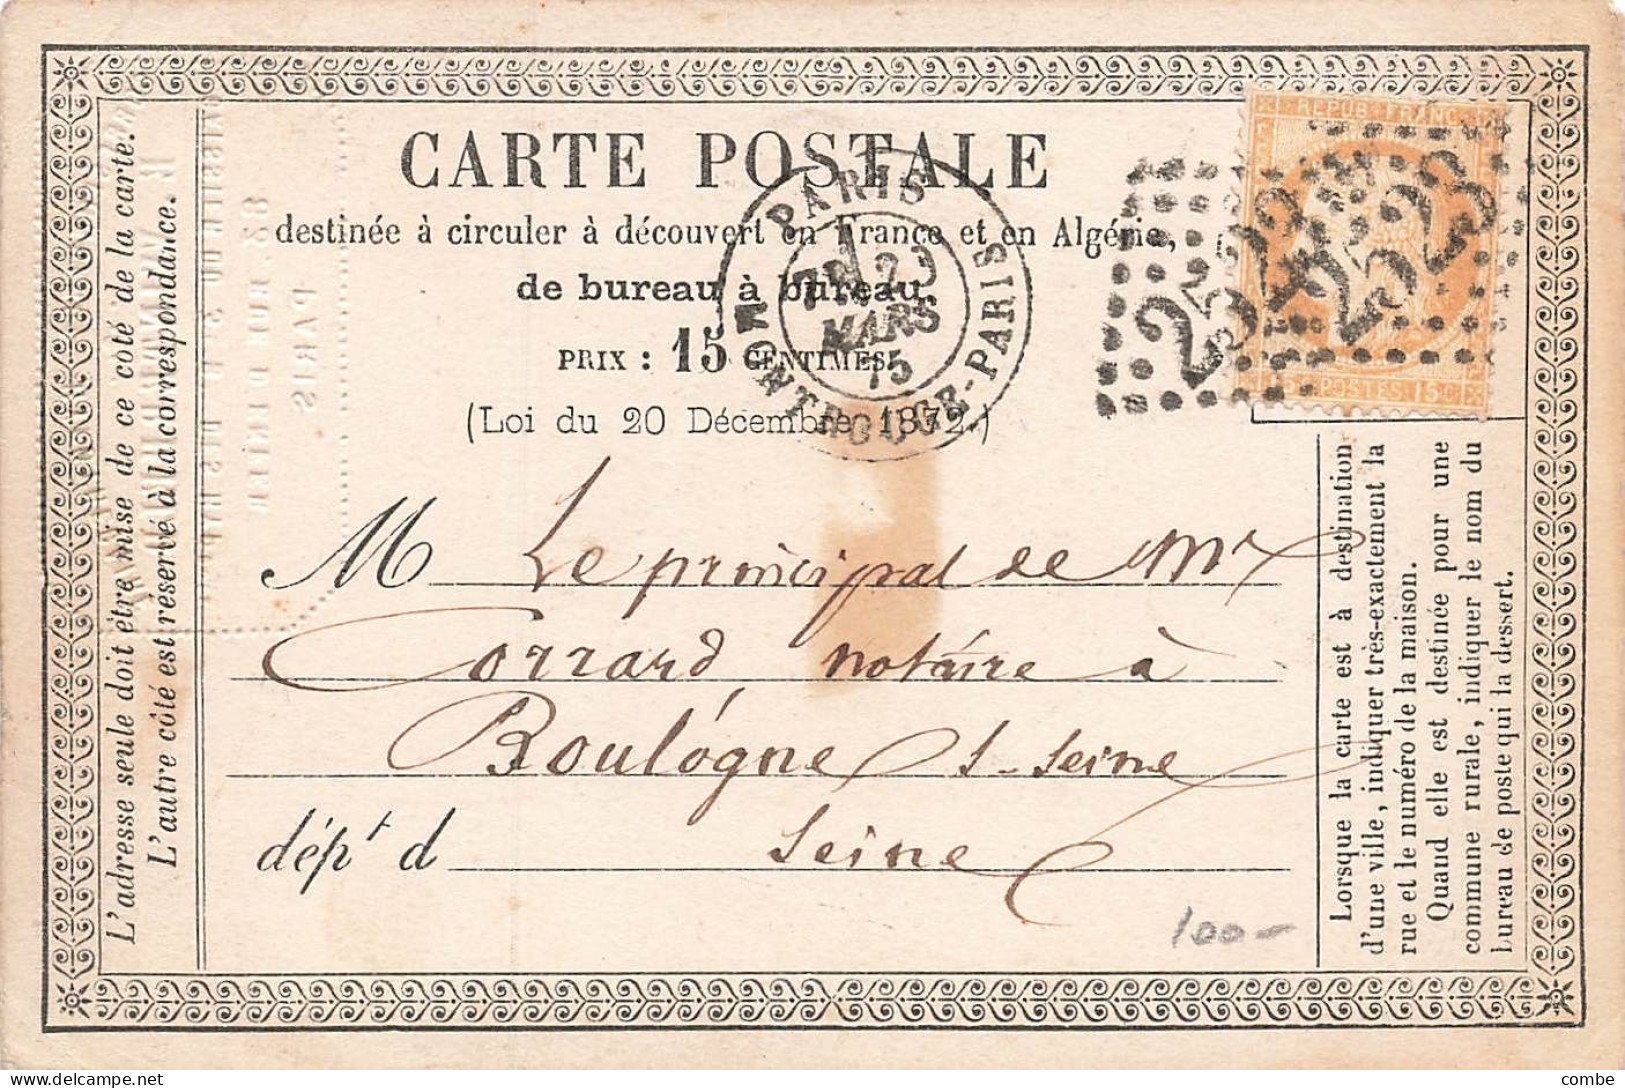 CARTE POSTALE
destinée à circuler à découvert en France et en Algérie,
de bureau à bureau.
PRIX : 15 CENTIMES.
(Loi du 20 Décembre 1872.)
PARIS
20
MARS
75
MONTROUGE-PARIS
REPUB FRANC
POSTES 15 C
L'adresse seule doit être mise de ce coté de la carte.
L'autre côté est réservé à la correspondance.
PARIS
M Le principal de Mr
Corrard notaire à
Boulogne s-seine
dépt d seine
Lorsque la carte est à destination
d'une ville, indiquer très-exactement la
rue et le numéro de la maison.
Quand elle est destinée pour une
commune rurale, indiquer le nom du
bureau de poste qui la dessert.
100-
delcampe.net
combe